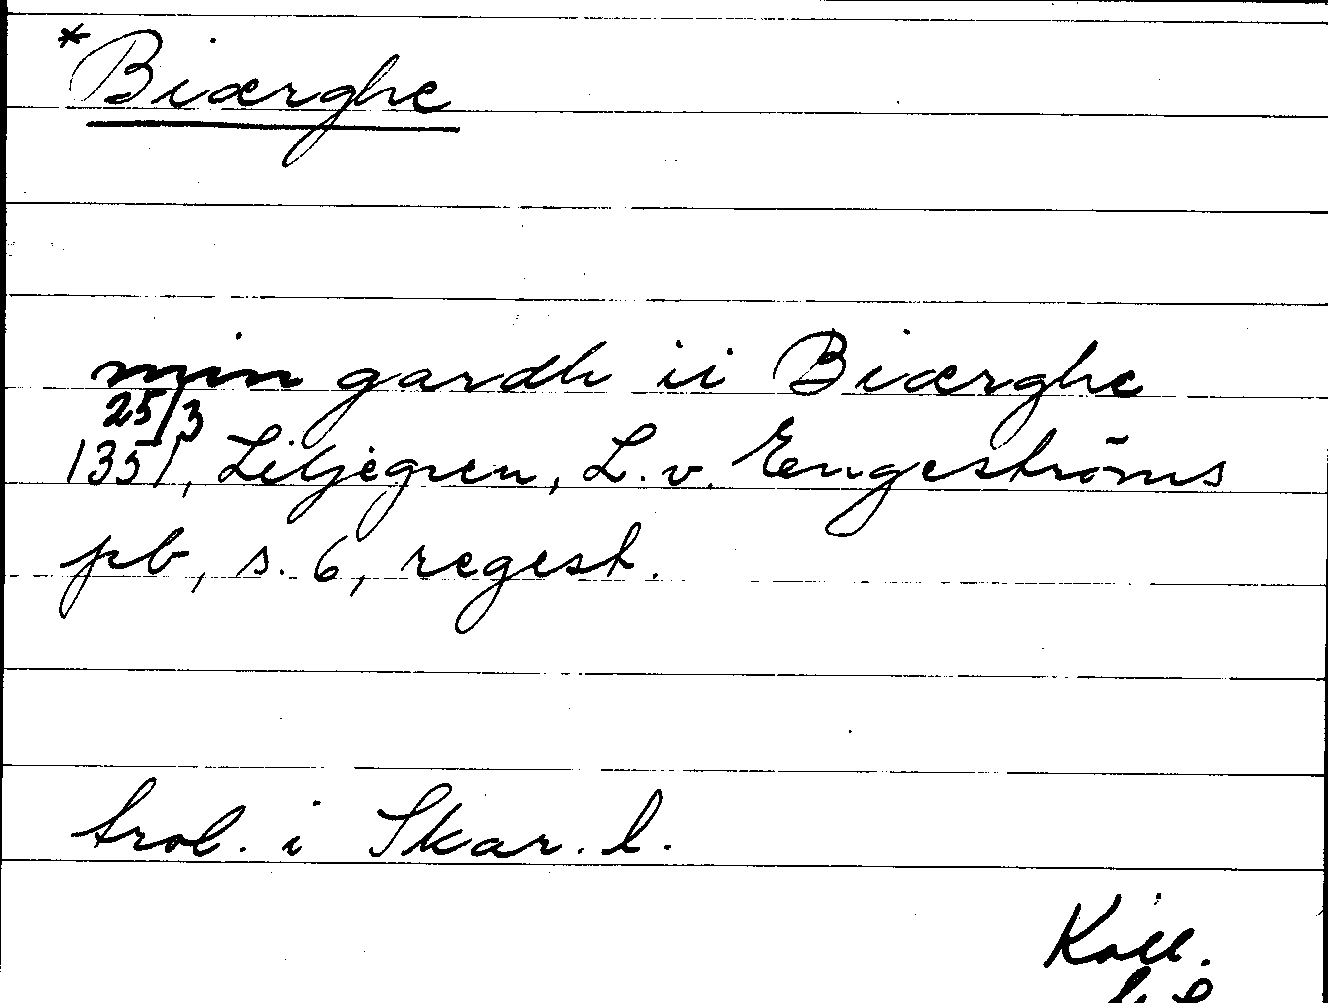 *Biærghe
min gardh ii Biærghe
25/3
1351, Liljegren, L. v. Engeströms
pb, s. 6, regest.
trol. i Skar. l.
Koll.